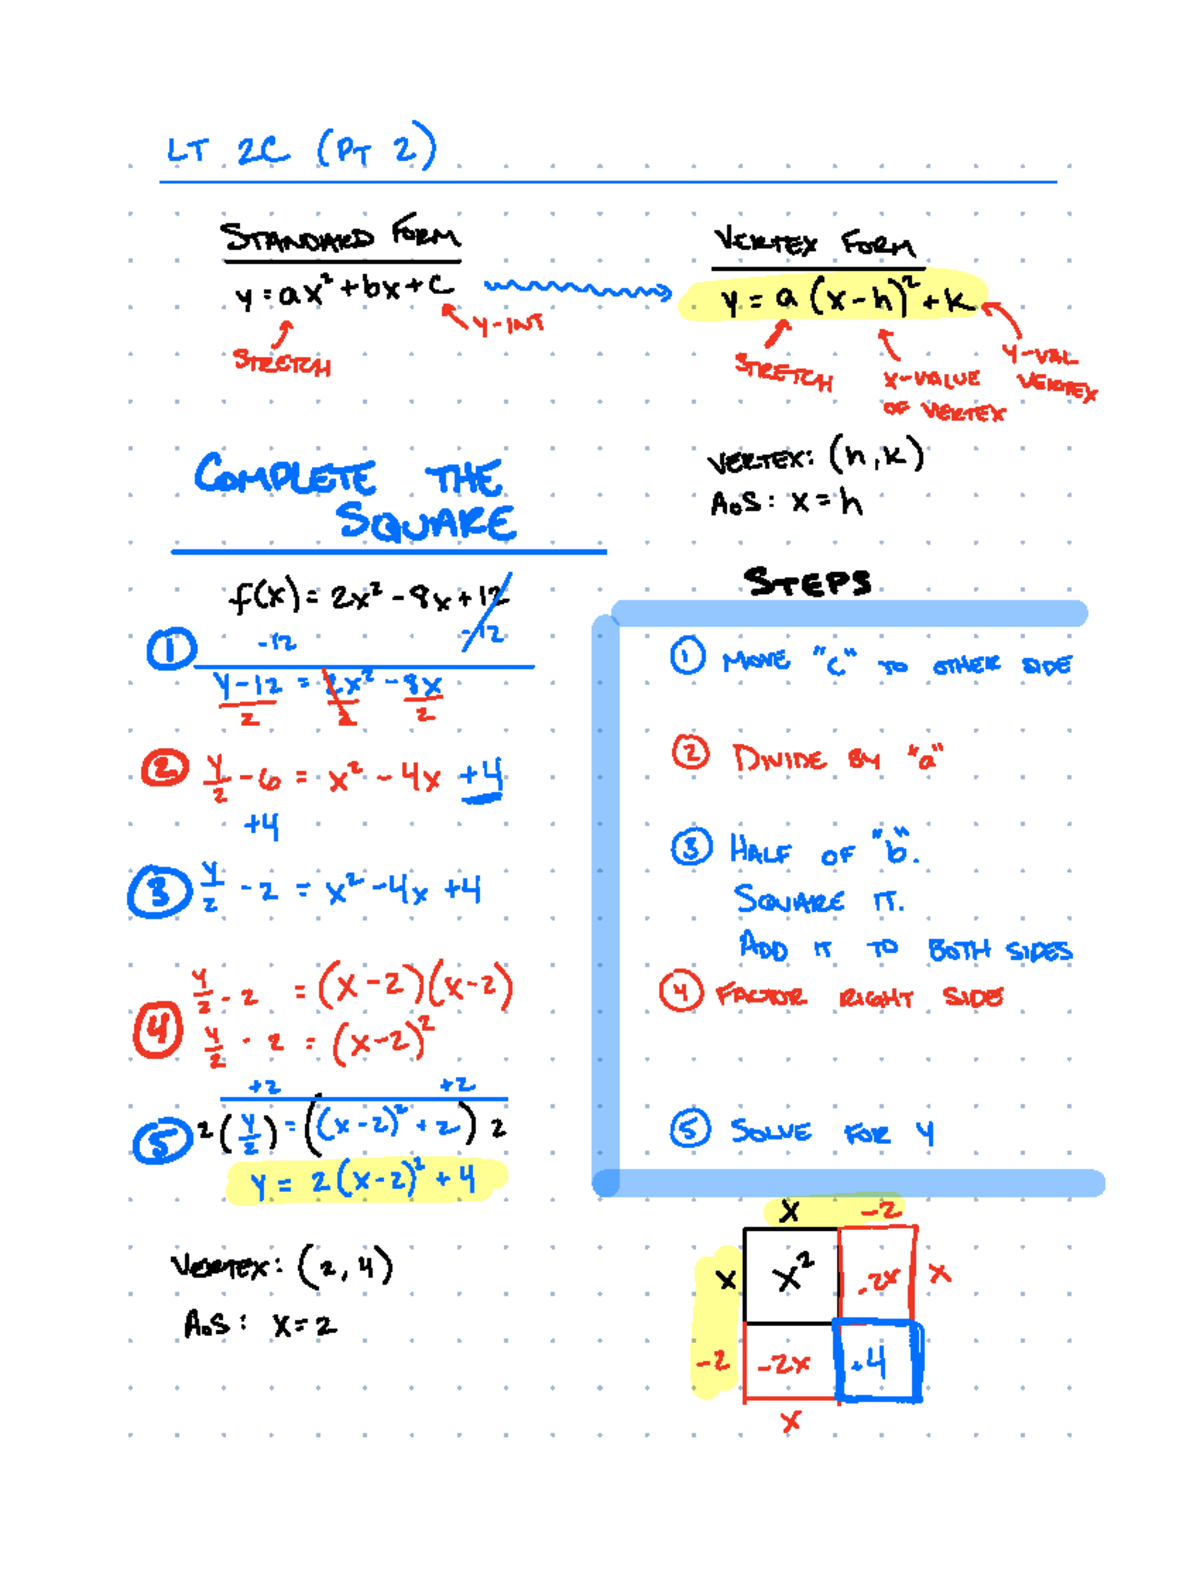 LT 2C (PT 2)
STANDARD FORM
y = ax² + bx + c
Y-INT
STRETCH
VERTEX FORM
y = a(x-h)² + k
STRETCH
X-VALUE
OF VERTEX
Y-VAL
VERTEX
VERTEX: (h, k)
AoS: x = h
COMPLETE THE
SQUARE
f(x) = 2x² - 8x + 12
① -12 -12
y-12 = 2x² - 8x
2 2 2
② y/2 - 6 = x² - 4x +4
+4
③ y/2 - 2 = x² - 4x + 4
y/2 - 2 = (x-2)(x-2)
④ y/2 - 2 = (x-2)²
+2 +2
⑤ 2(y/2) = ((x-2)² + 2) 2
y = 2(x-2)² + 4
VERTEX: (2, 4)
AoS: x = 2
STEPS
① MOVE "C" TO OTHER SIDE
② DIVIDE BY "a"
③ HALF OF "b".
SQUARE IT.
ADD IT TO BOTH SIDES
④ FACTOR RIGHT SIDE
⑤ SOLVE FOR Y
x -2
x x² -2x x
-2 -2x +4
x